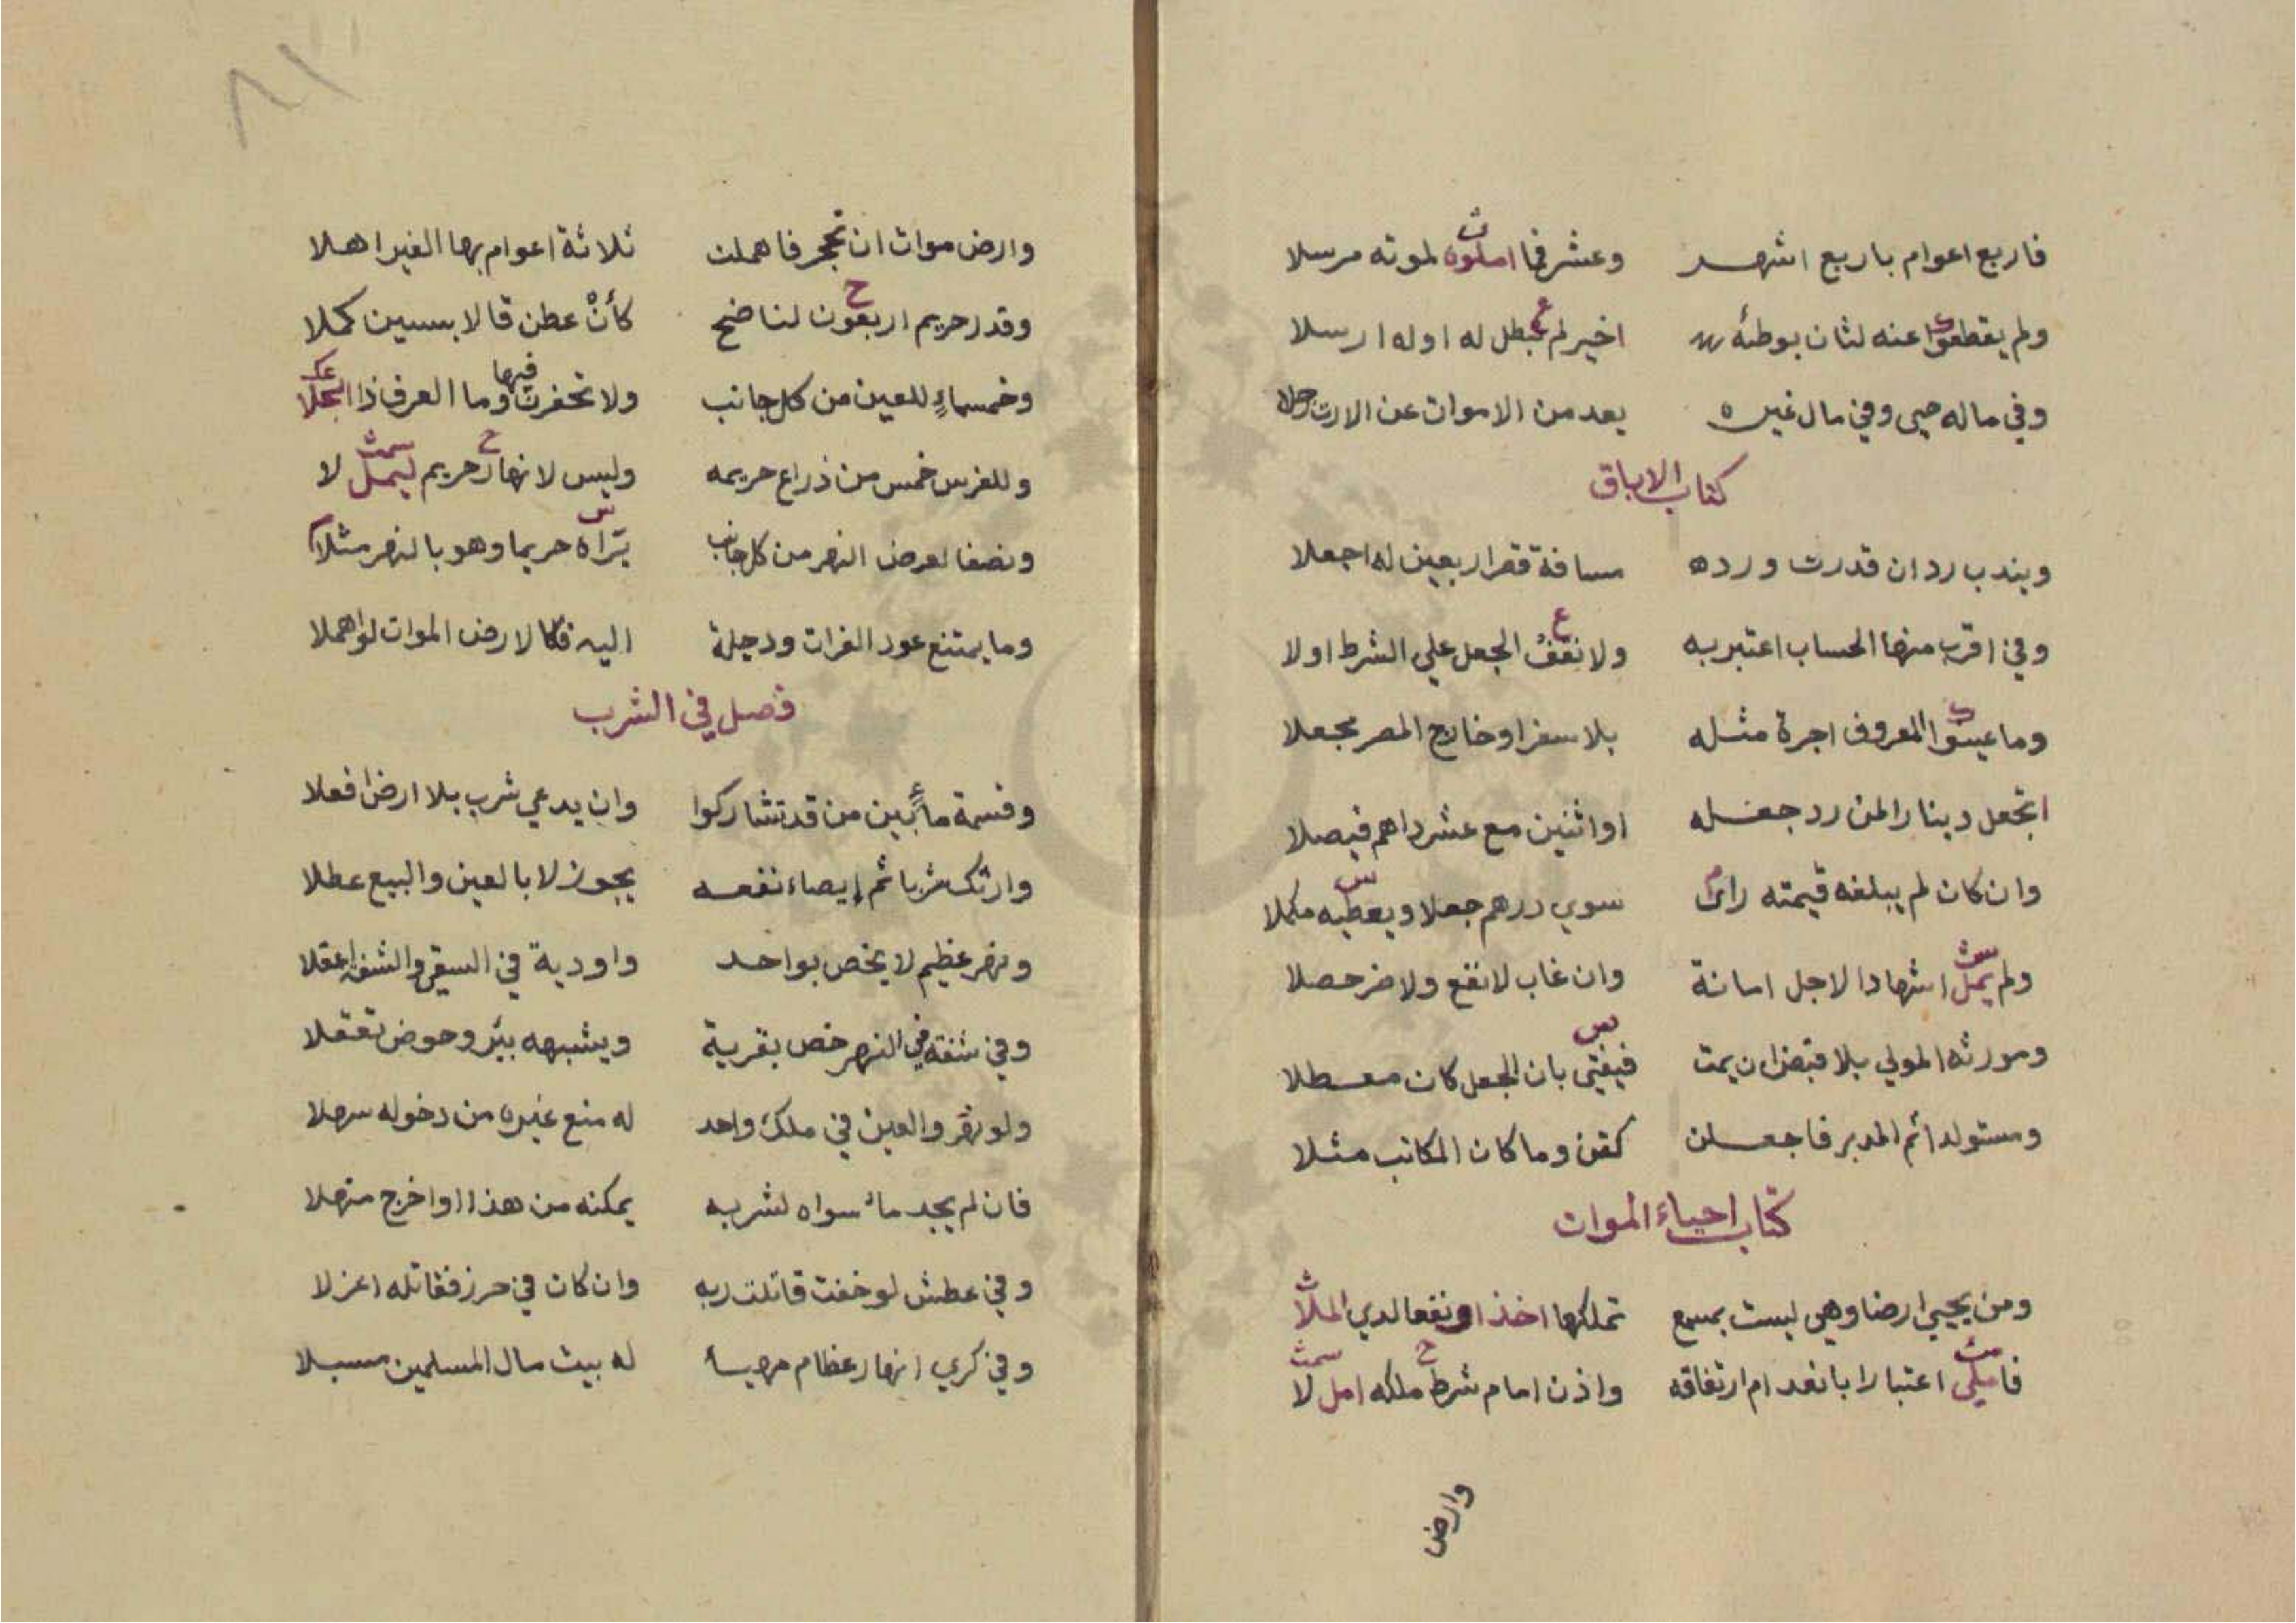 فاربع اعوام باربع اشهر وعشر فما املوه لموته مرسلا
ولم يقطعوا عنه لثان بوطئه اخير لم تحبطل له اوله ارسلا
وفي ماله حيى وفي مال غيره يعد من الاموات عن الارث حولا
كتاب الاباق
ويندب رد ان قدرت ورده مسافة قصر اربعين له اجعلا
وفي اقرب منها الحساب اعتبر به ولا نقف الجعل علي الشرط اولا
وما عينوا المعروف اجرة مثله بلا سفر او خارج المصر مجعلا
اتجعل دينارا لمن رد جعله او اثنين مع عشر داهم فيصلا
وان كان لم يبلغه قيمته راى سوي درهم جعلا ويعطيه مكملا
ولم يمل اشهادا لاجل امانة وان غاب لا نفع ولا ضر حصلا
ومورثه المولي بلا قبض ان يمت فيفتى بان الجعل كان معطلا
ومستولد اثم المدبر فاجعلن كقن وما كان المكاتب مثلا
كتاب احياء الموات
ومن يحيي ارضا وهي ليست بمسمع تملكها اخذا ونفعا لدي الملا
فاملى اعتبارا بانعدام ارتفاقه واذن امام شرط ملكه امل لا
وارض
٨١
وارض موات ان تحجر فاهملت ثلاثة اعوام بها الغير اهلا
وقدر حريم اربعون لناضح كأن عطن قالا بستين كملا
وخمسماء للعين من كل جانب ولا تحفرن فيها وما العرف ذا انجلا
وللغرس خمس من ذراع حريمه وليس لانهار حريم ليمل لا
ونصفا لعرض النهر من كل جانب يراه حريما وهو بالنهر مثلا
وما يمتنع عود الفرات ودجلة اليه فكالارض الموات لواهملا
فصل في الشرب
وقسمة ماء بين من قد تشاركوا وان يدعي شرب بلا ارض افعلا
وارثك شربا ثم إيصاء نفعه يجوز لا بالعين والبيع عطلا
ونهر عظيم لا يخص بواحد واودية في السقي والشفة اعقلا
وفي شفة في النهر خص بقرية ويشبهه بئر وحوض تعقلا
ولو نهر والعين في ملك واحد له منع غيره من دخوله سهلا
فان لم يجد ماء سواه لشربه يمكنه من هذا او اخرج منهلا
وفي عطش لو خفت قاتلت ربه وان كان في حرز فقاتله اعزلا
وفي كري انهار عظام مهيأ له بيت مال المسلمين مسبلا